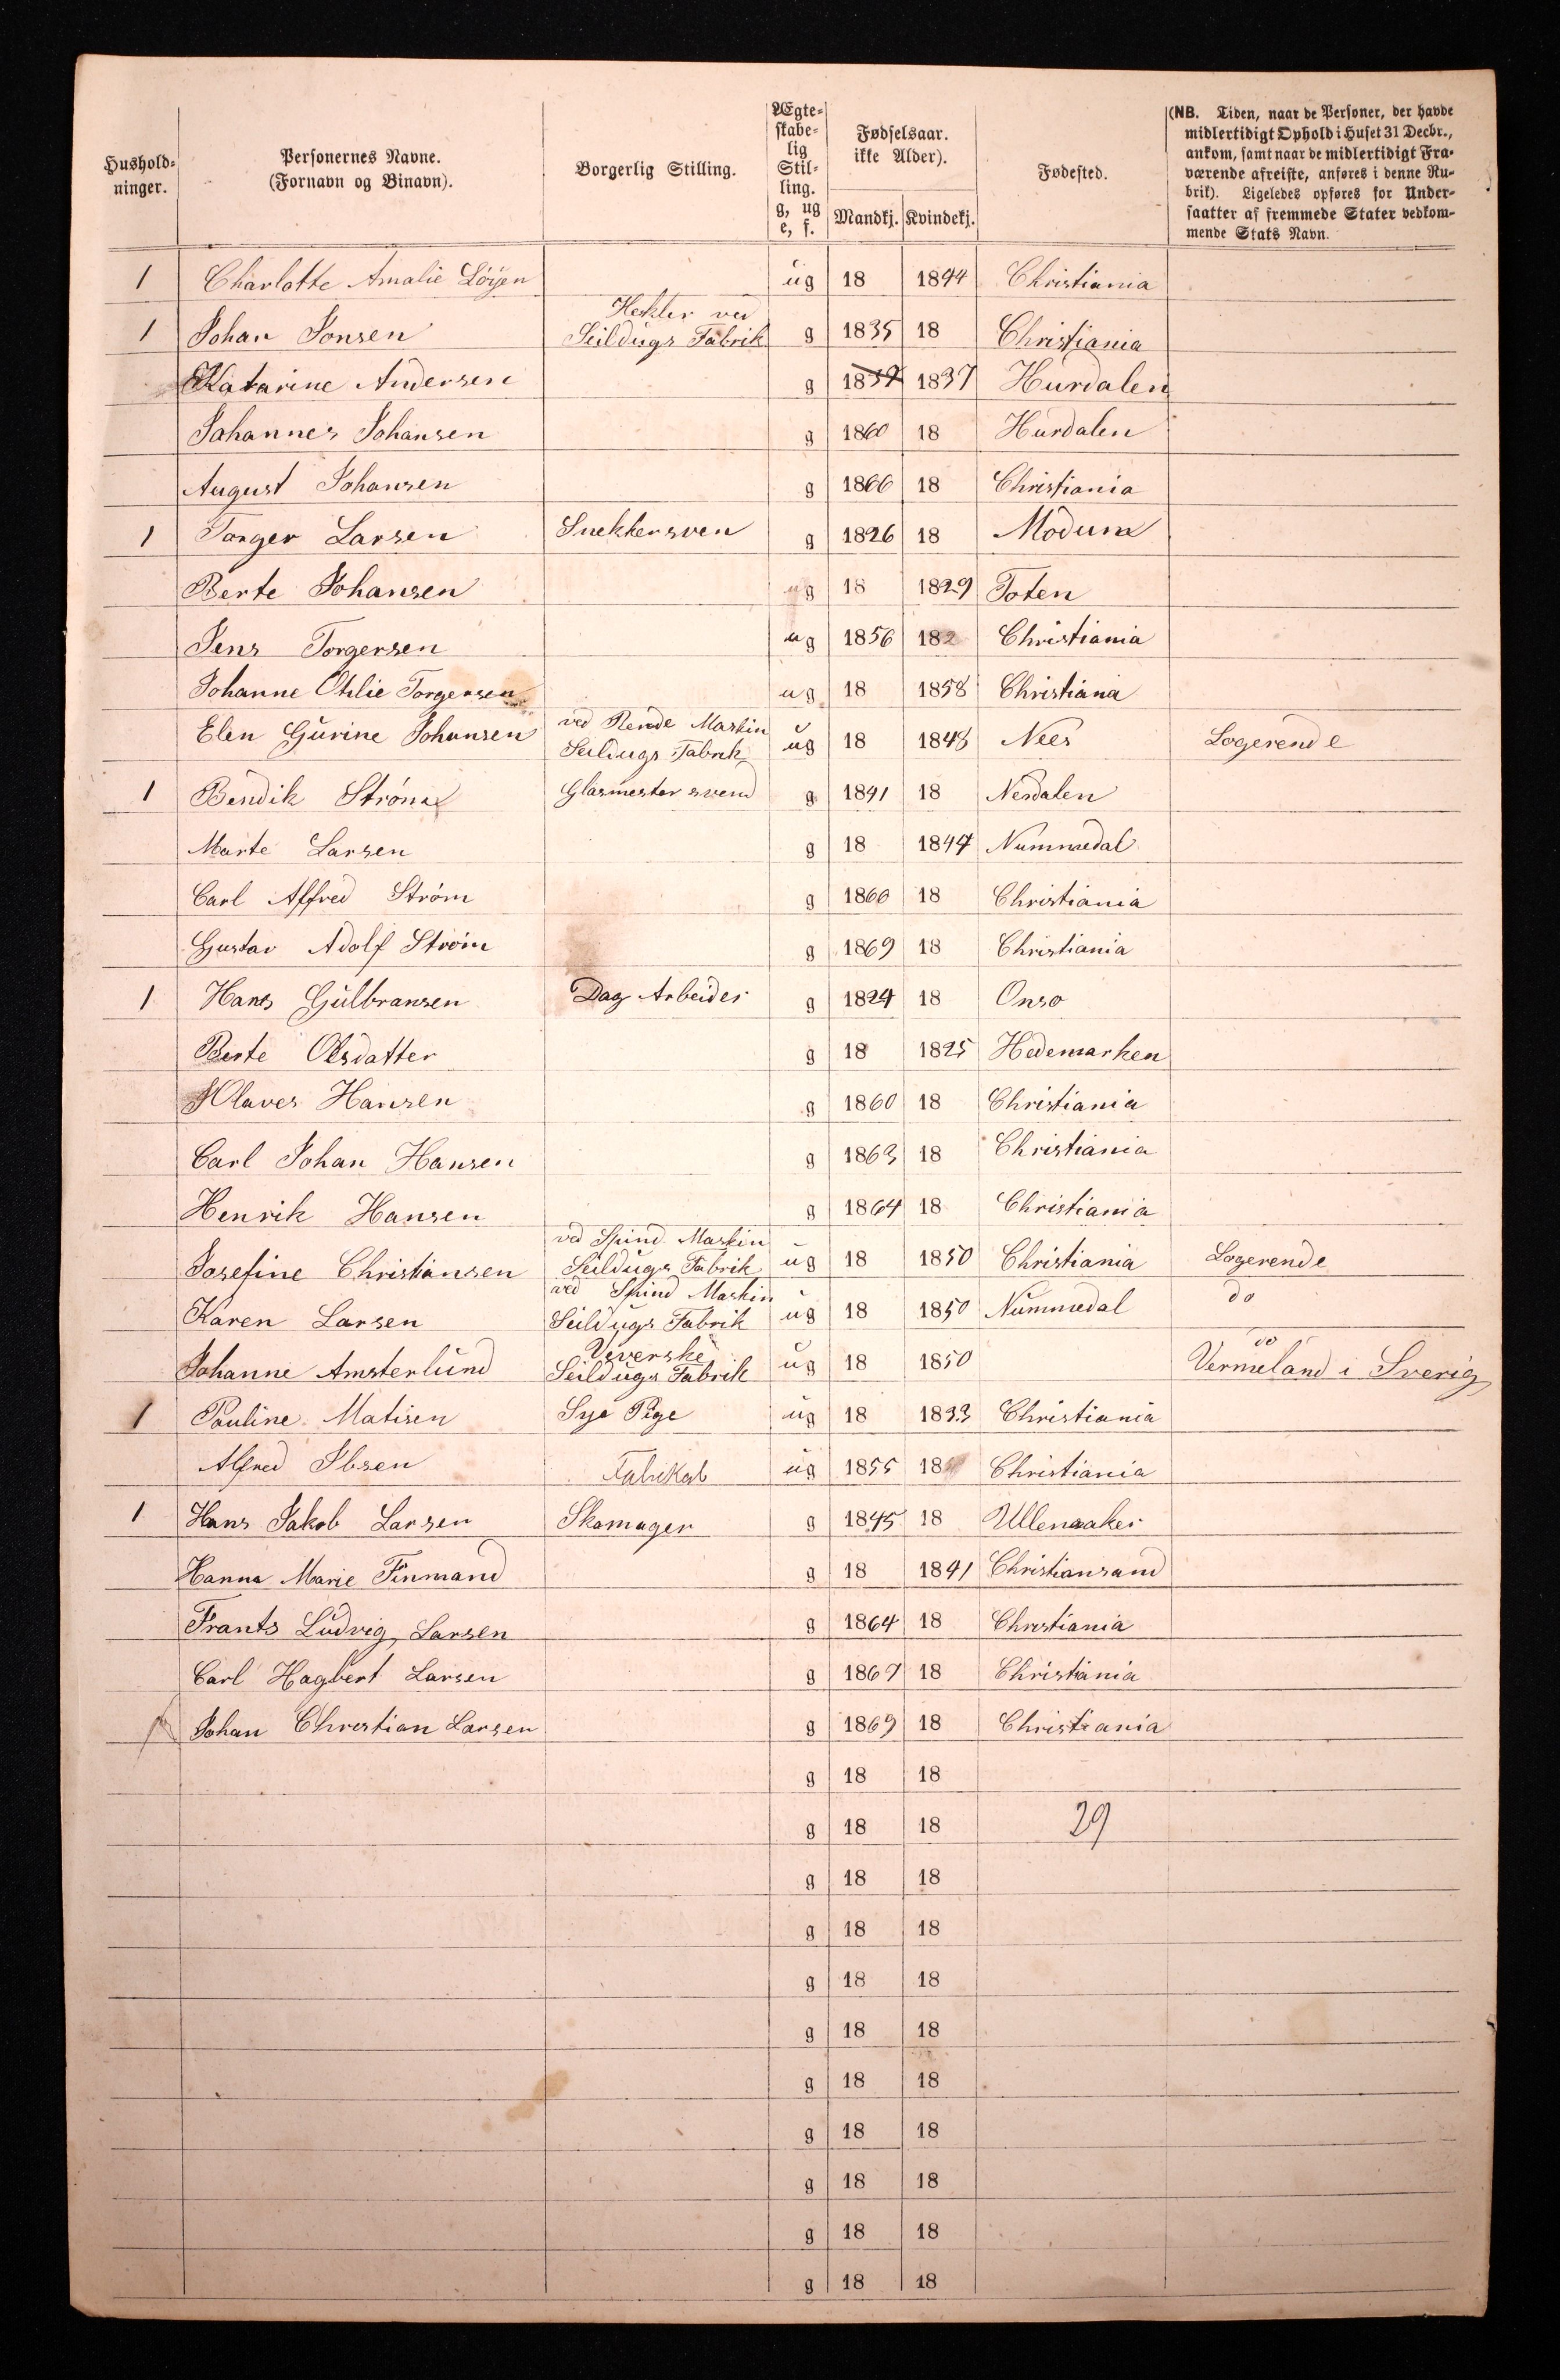 Hushold-
ninger.
Personernes Navne.
(Fornavn og Binavn).
Borgerlig Stilling.
Ægte-
skabe-
lig
Stil-
ling.
g, ug
e, f.
Fødselsaar.
ikke Alder).
Mandkj. Kvindekj.
Fødested.
(NB. Tiden, naar de Personer, der havde
midlertidigt Ophold i Huset 31 Decbr.,
ankom, samt naar de midlertidigt Fra-
værende afreiste, anføres i denne Ru-
brik). Ligeledes opføres for Under-
saatter af fremmede Stater vedkom-
mende Stats Navn.
1 Charlotte Amalie ug 18 1844 Christiania
Hekler ved
1 Johan Jonsen Seildugs Fabrik g 1835 18 Christiania
Katarine Andersen g 1837 1837 Hurdalen
Johannes Johansen g 1860 18 Hurdalen
August Johansen g 1866 18 Christiania
1 Torger Larsen Snekkersven g 1826 18 Modum
Berte Johansen ug 18 1829 Toten
Jens Torgersen ug 1856 182 Christiania
Johanne Othlie Torgersen ug 18 1858 Christiana
ved Rende Maskin
Elen Gurine Johansen Seildugs Fabrik ug 18 1848 Nees Logerende
1 Bendik Strøm Glasmester svend g 1841 18 Nesdalen
Marte Larsen g 18 1844 Nummedal
Carl Alfred Strøm g 1866 18 Christiania
Gustav Adolf Strøm g 1869 18 Christiania
1 Hans Gulbransen Dag Arbeider g 1824 18 Onso
Berte Olsdatter g 18 1825 Hedemarken
Olaves Hansen g 1860 18 Christiania
Carl Johan Hansen g 1863 18 Christiania
Henrik Hansen g 1864 18 Christiania
ved Spind Maskin
Josefine Christiansen Seildugs Fabrik ug 18 1850 Christiania Logerende
ved Spind Maskin
Karen Larsen Seildugs Fabrik ug 18 1850 Nummedal do
Veverske do
Johanne Amsterlund Seildugs Fabrik ug 18 1850 Vermeland i Sverig
1 Pauline Matisen Sye Pige ug 18 1833 Christiania
Alfred Ibsen ug 1855 18 Christiania
1 Hans Jakob Larsen Skomager g 1845 18 Ullensaker
Hanna Marie Finmand g 18 1841 Christiansand
Frants Ludvig Larsen g 1864 18 Christiania
Carl Hagbert Larsen g 1867 18 Christiania
Johan Christian Larsen g 1869 18 Christiania
g 18 18
g 18 18 29
g 18 18
g 18 18
g 18 18
g 18 18
g 18 18
g 18 18
g 18 18
g 18 18
g 18 18